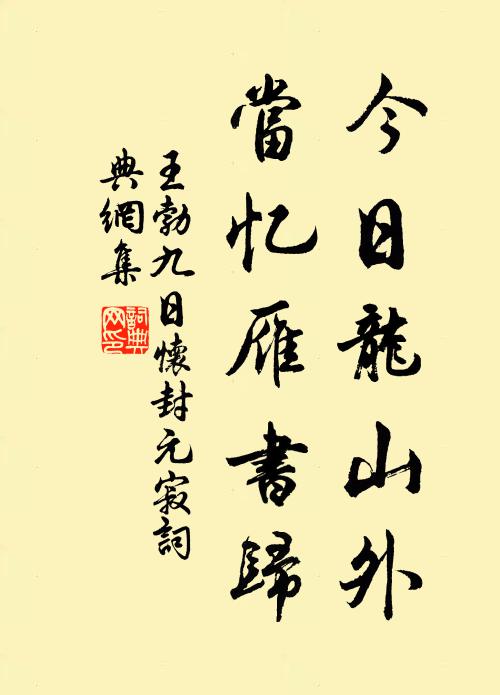 今日龍山外
當忆雁書歸
王勃九日懷封元寂詞
典網集
詞典
网印